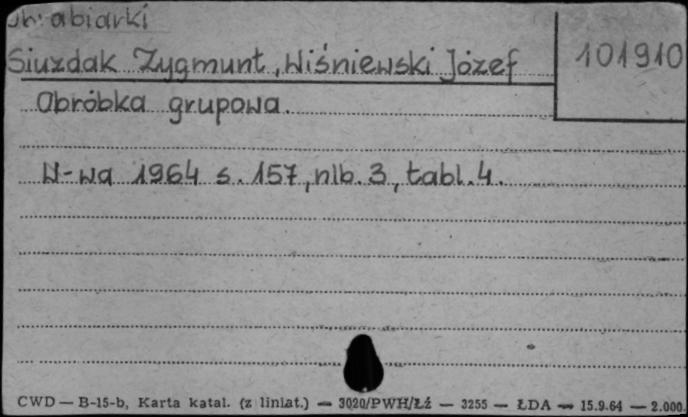 obrabiarki
Siuzdak Zygmunt, Wiśniewski Józef
101910
Obróbka grupowa.
W-wa 1964 s. 157, nlb. 3, tabl. 4.
CWD — B-15-b, Karta katal. (z liniat.) — 3020/PWH/Łź — 3255 — ŁDA — 15.9.64 — 2.000.